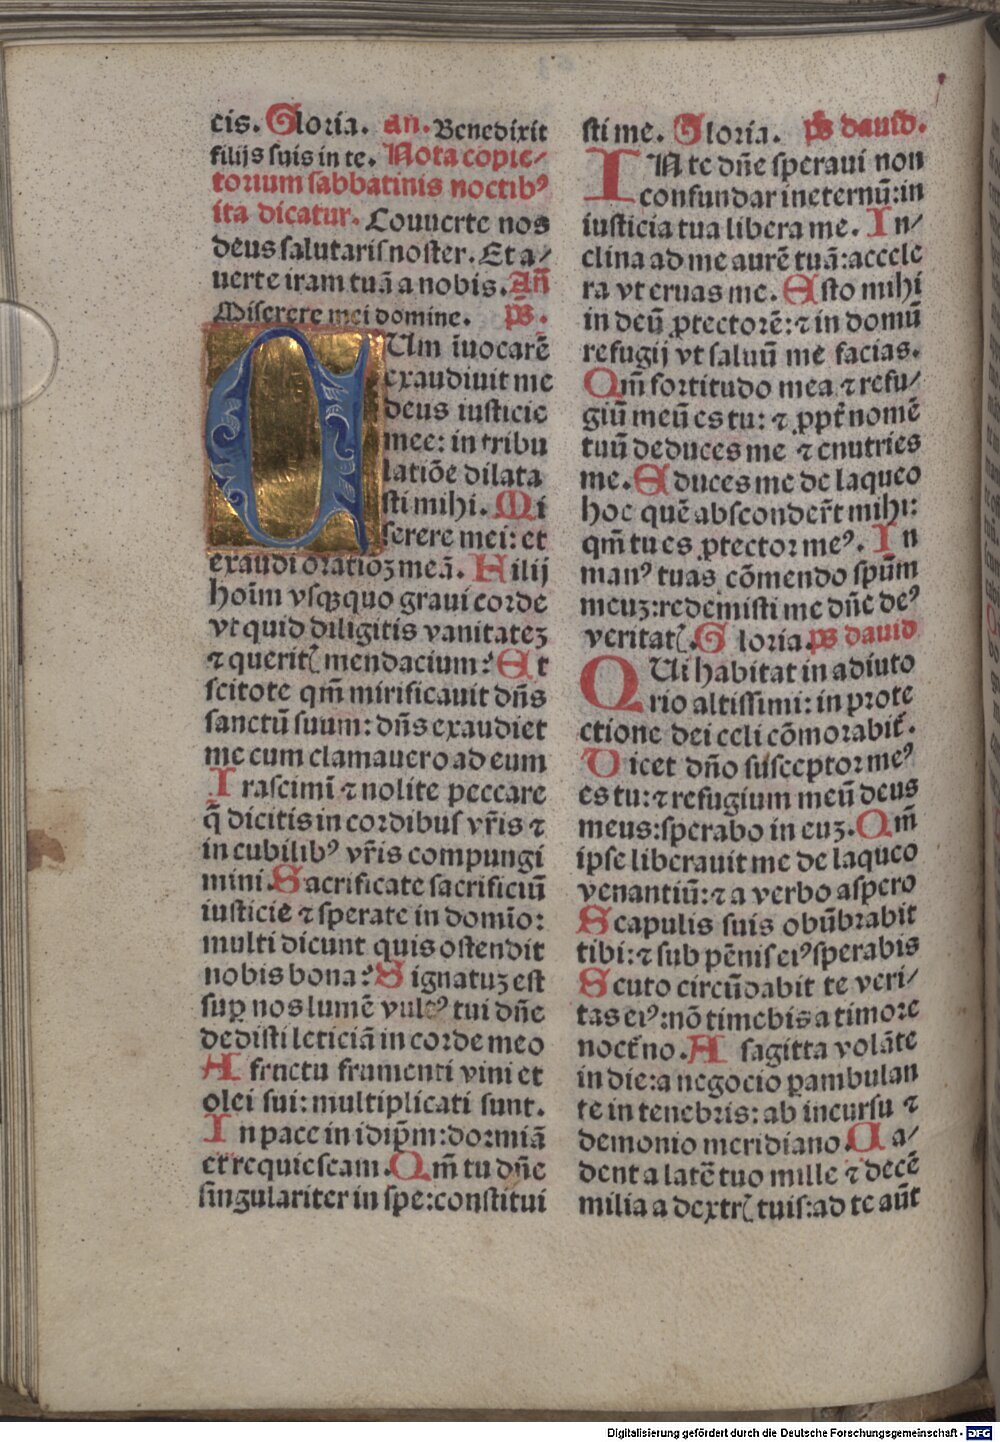 cis. Gloria. an̄. Benedixit
filijs suis in te. Nota cople⸗
torium sabbatinis noctibꝰ
ita dicatur. Conuerte nos
deus salutaris noster. Et a⸗
uerte iram tuā a nobis. An̄
Miserere mei domine. ps̄.
CUm īuocarē
exaudiuit me
deus iusticie
mee: in tribu
latiōe dilata
sti mihi. Mi
serere mei: et
exaudi oratioꝫ meā. Filij
hoīm vsqꝫquo graui corde
vt quid diligitis vanitateꝫ
⁊ querit̄ mendacium: Et
scitote qm̄ mirificauit dn̄s
sanctū suum: dn̄s exaudiet
me cum clamauero ad eum
Irascimī ⁊ nolite peccare
q̄ dicitis in cordibus vr̄is ⁊
in cubilibꝰ vr̄is compungi
mini. Sacrificate sacrificiū
iusticie ⁊ sperate in domīo:
multi dicunt quis ostendit
nobis bona: Signatuꝫ est
suꝑ nos lumē vultꝰ tui dn̄e
dedisti leticiā in corde meo
A fructu frumenti vini et
olei sui: multiplicati sunt.
In pace in idip̄m: dormiā
et requiescam. Qm̄ tu dn̄e
singulariter in spe: constitui
sti me. Gloria. ps̄ dauid.
IN te dn̄e speraui non
confundar in eternū: in
iusticia tua libera me. In⸗
clina ad me aurē tuā: accele
ra vt eruas me. Esto mihi
in deū ꝓtectorē: ⁊ in domū
refugij vt saluū me facias.
Qm̄ fortitudo mea ⁊ refu⸗
giū meū es tu: ⁊ ꝓpt̄ nomē
tuū deduces me ⁊ enutries
me. Educes me de laqueo
hoc quē absconder̄t mihi:
qm̄ tu es ꝓtector meꝰ. In
manꝰ tuas cōmendo sp̄um
meuꝫ: redemisti me dn̄e deꝰ
veritat̄. Gloria. ps̄ dauid
QUi habitat in adiuto
rio altissimi: in prote
ctione dei celi cōmorabit̄.
Dicet dn̄o susceptor meꝰ
es tu: ⁊ refugium meū deus
meus: sperabo in euꝫ. Qm̄
ipse liberauit me de laqueo
venantiū: ⁊ a verbo aspero
Scapulis suis obūbrabit
tibi: ⁊ sub pēnis eiꝰ sperabis
Scuto circūdabit te veri⸗
tas eiꝰ: nō timebis a timore
noct̄no. A sagitta volāte
in die: a negocio ꝑambulan
te in tenebris: ab incursu ⁊
demonio meridiano. Ca⸗
dent a latē tuo mille ⁊ decē
milia a dextr̄ tuis: ad te aūt
Digitalisierung gefördert durch die Deutsche Forschungsgemeinschaft - DFG